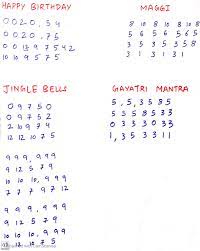 HAPPY BIRTHDAY
0 0 2 0 , 5 4
0 0 2 0 , 7 5
0 0 12 9 7 5 4 2
10 10 9 5 7 5
MAGGI
8 10 8 10 8 10 8
5 6 5 6 5 6 5
3 5 3 5 3 5 8
3 1 3 1 3 1
JINGLE BELLS
0 9 7 5 0
0 9 7 5 2
2 10 9 7 4
12 12 10 7 9
9 9 9 , 9 9 9
9 12 5 7 9
10 10 10 , 9 9 9
7 7 7 9 7 12
9 9 9 , 9 9 9
9 12 5 7 9
10 10 10 , 9 9 9
12 12 10 7 5
GAYATRI MANTRA
5 , 5 , 3 5 8 5
5 5 3 5 8 5 3 3
0 3 3 3 0 3 3
1 , 3 5 3 3 1 1